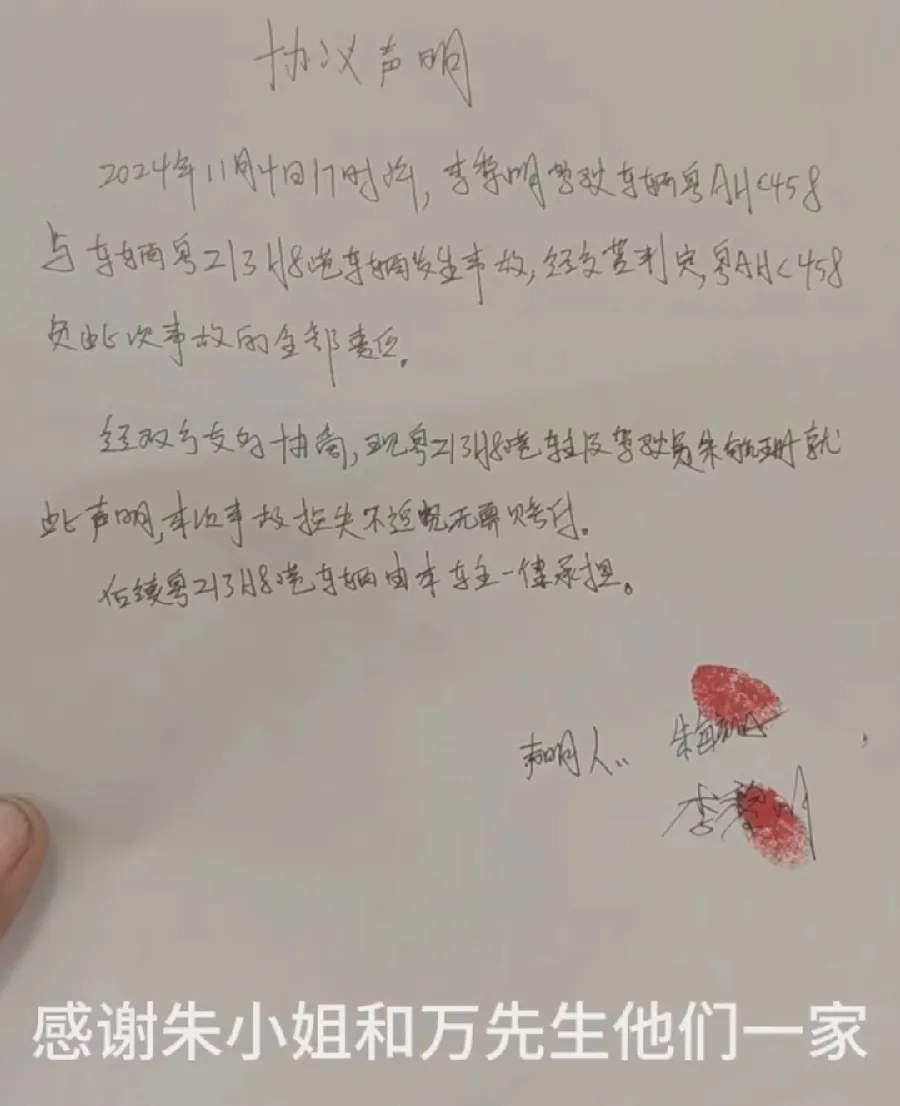 协议声明
2024年11月4日17时许,李黎明驾驶车辆粤AH
与车辆粤Z13H8港车辆发生事故,经交警判定,粤AH
负此次事故的全部责任。
经双方友好协商,现粤Z13H8港车主及驾驶员朱就
此声明,本次事故损失不追究无需赔付。
后续粤Z13H8港车辆由本车主一律承担。
声明人: 朱
李黎明
感谢朱小姐和万先生他们一家